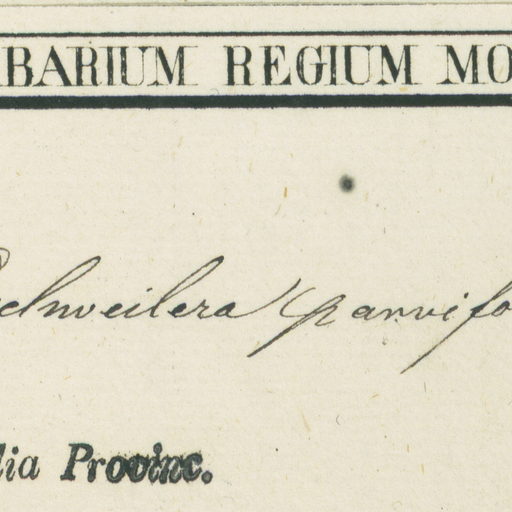 RBARIUM REGIUM MO
Eschweilera parvifo
lia Provinc.